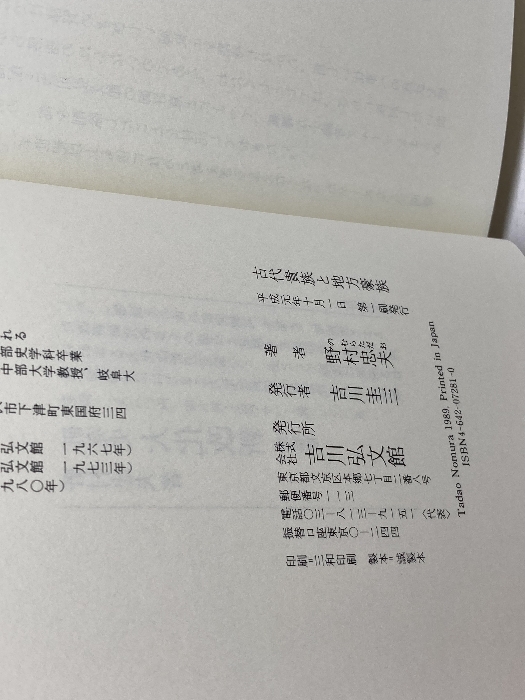 古代貴族と地方豪族
平成元年十月一日 第一刷発行
著者 野村忠夫
のむらただお
発行者 吉川圭三
発行所 株式会社 吉川弘文館
東京都文京区本郷七丁目二番八号
郵便番号一一三
電話〇三―八一三―九一五一(代表)
振替口座東京〇―二四四
印刷=三和印刷 製本=誠製本
Tadao Nomura 1989. Printed in Japan
ISBN4-642-07281-0
れる
部史学科卒業
中部大学教授、岐阜大
市下津町東国府三四
弘文館 一九六七年)
弘文館 一九七三年)
九八〇年)